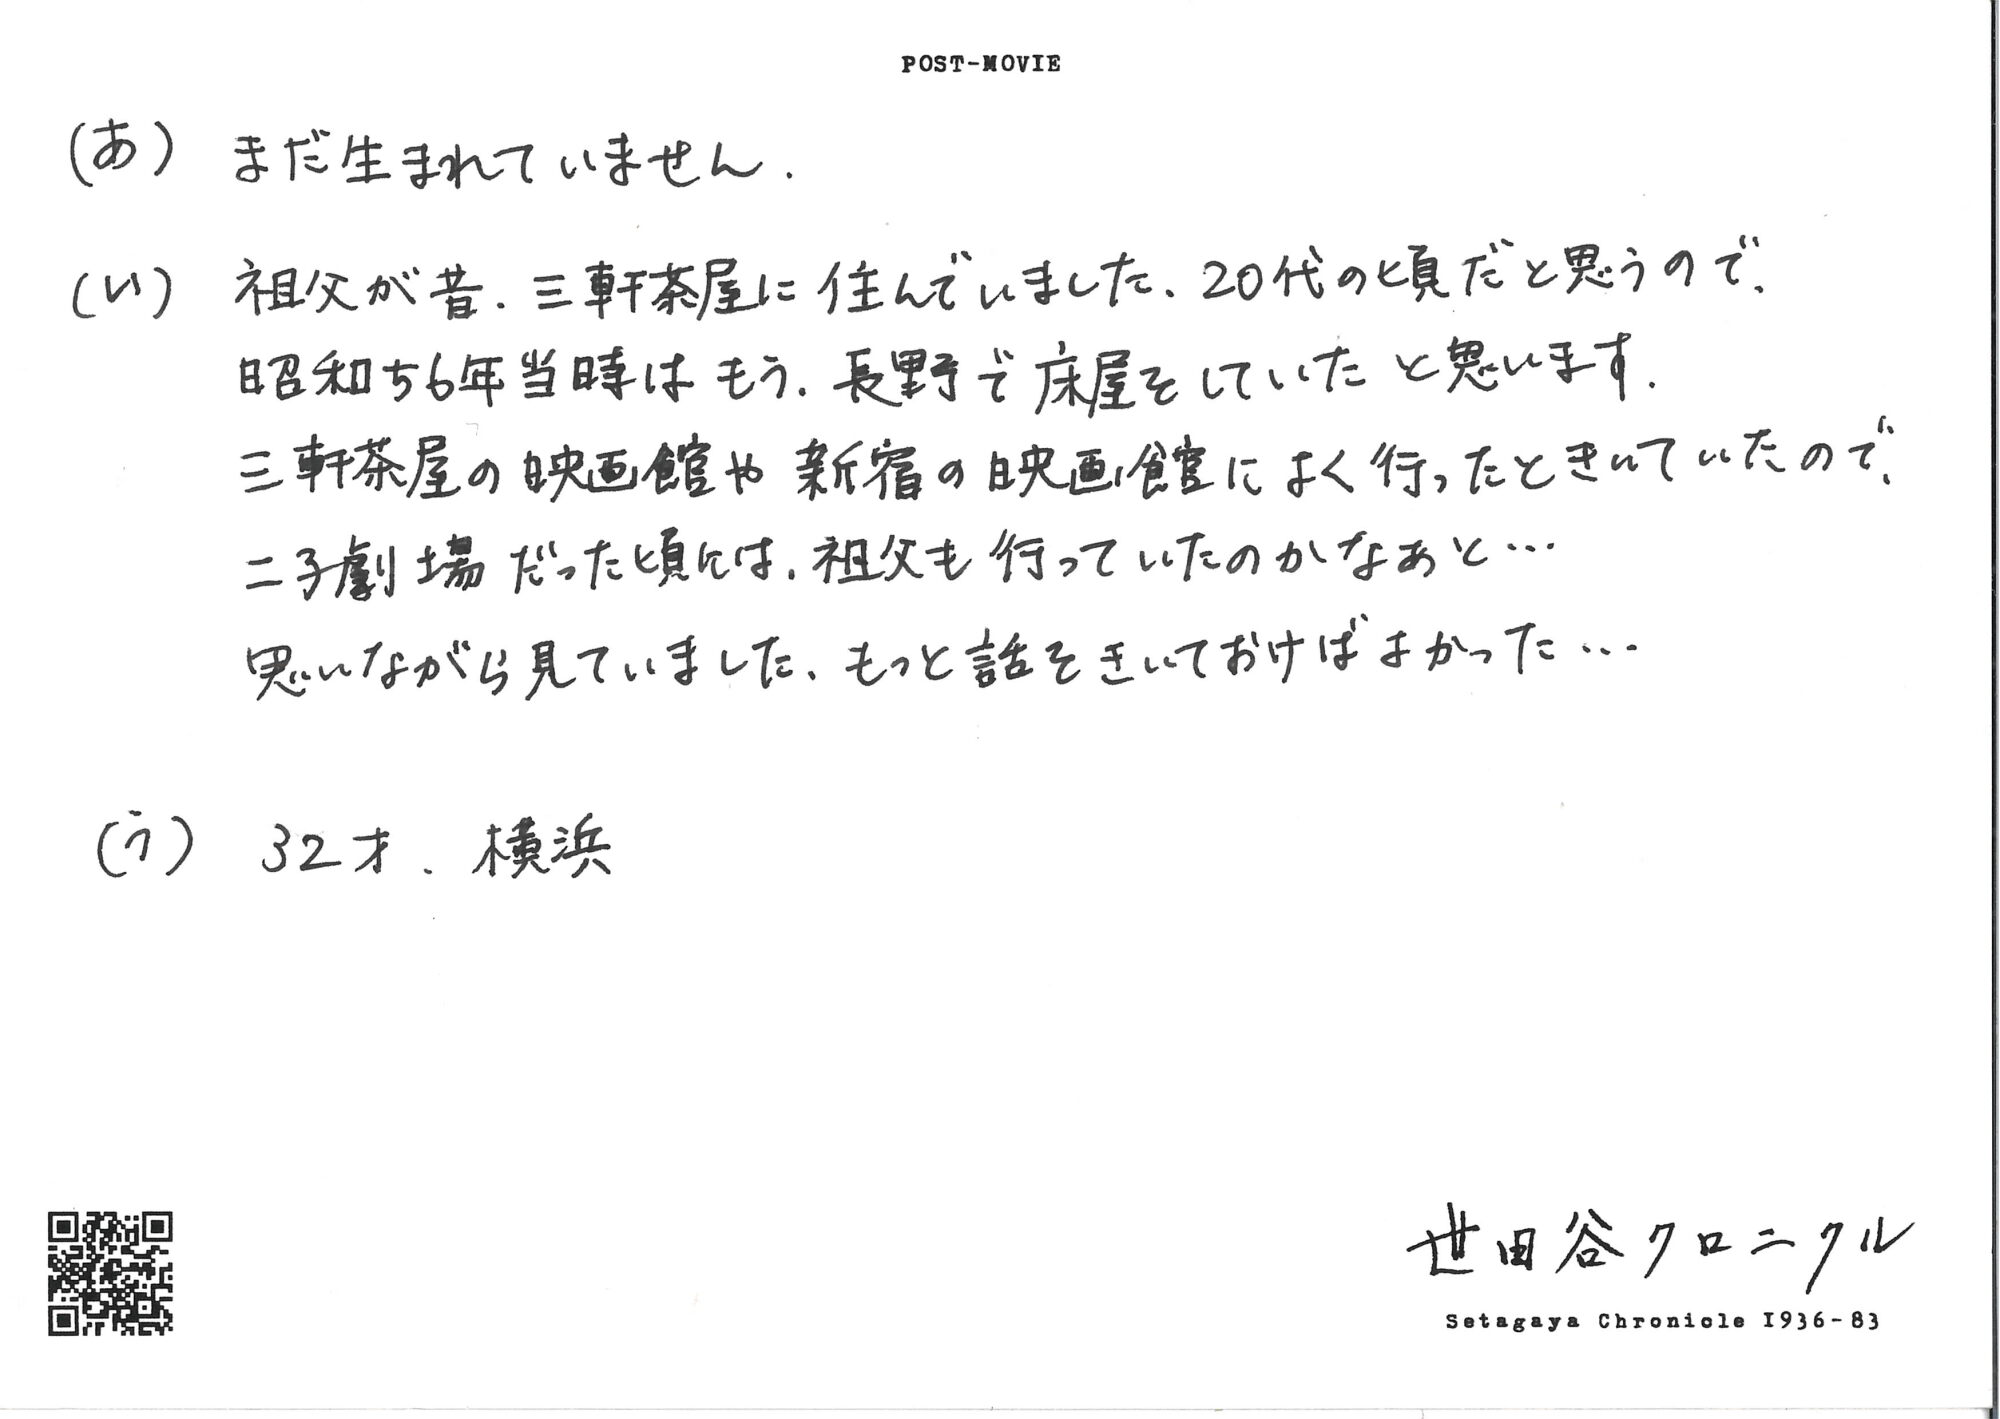 POST-MOVIE
(あ) まだ生まれていません.
(い) 祖父が昔、三軒茶屋に住んでいました、20代の頃だと思うので、
昭和56年当時はもう、長野で床屋をしていたと思います.
三軒茶屋の映画館や新宿の映画館によく行ったときいていたので、
二子劇場だった頃には、祖父も行っていたのかなぁと…
思いながら見ていました、もっと話をきいておけばよかった…
(う) 32才. 横浜
世田谷クロニクル
Setagaya Chronicle 1936-83